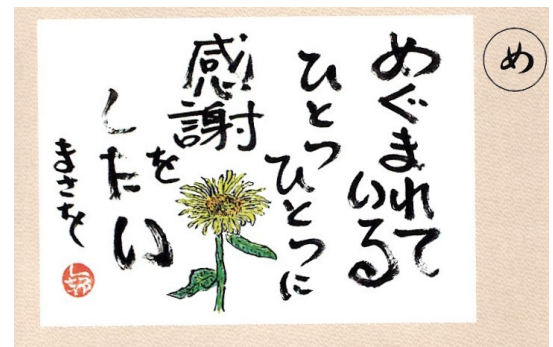 め
めぐまれて
いる
ひとつ
ひとつに
感謝
を
したい
まさを